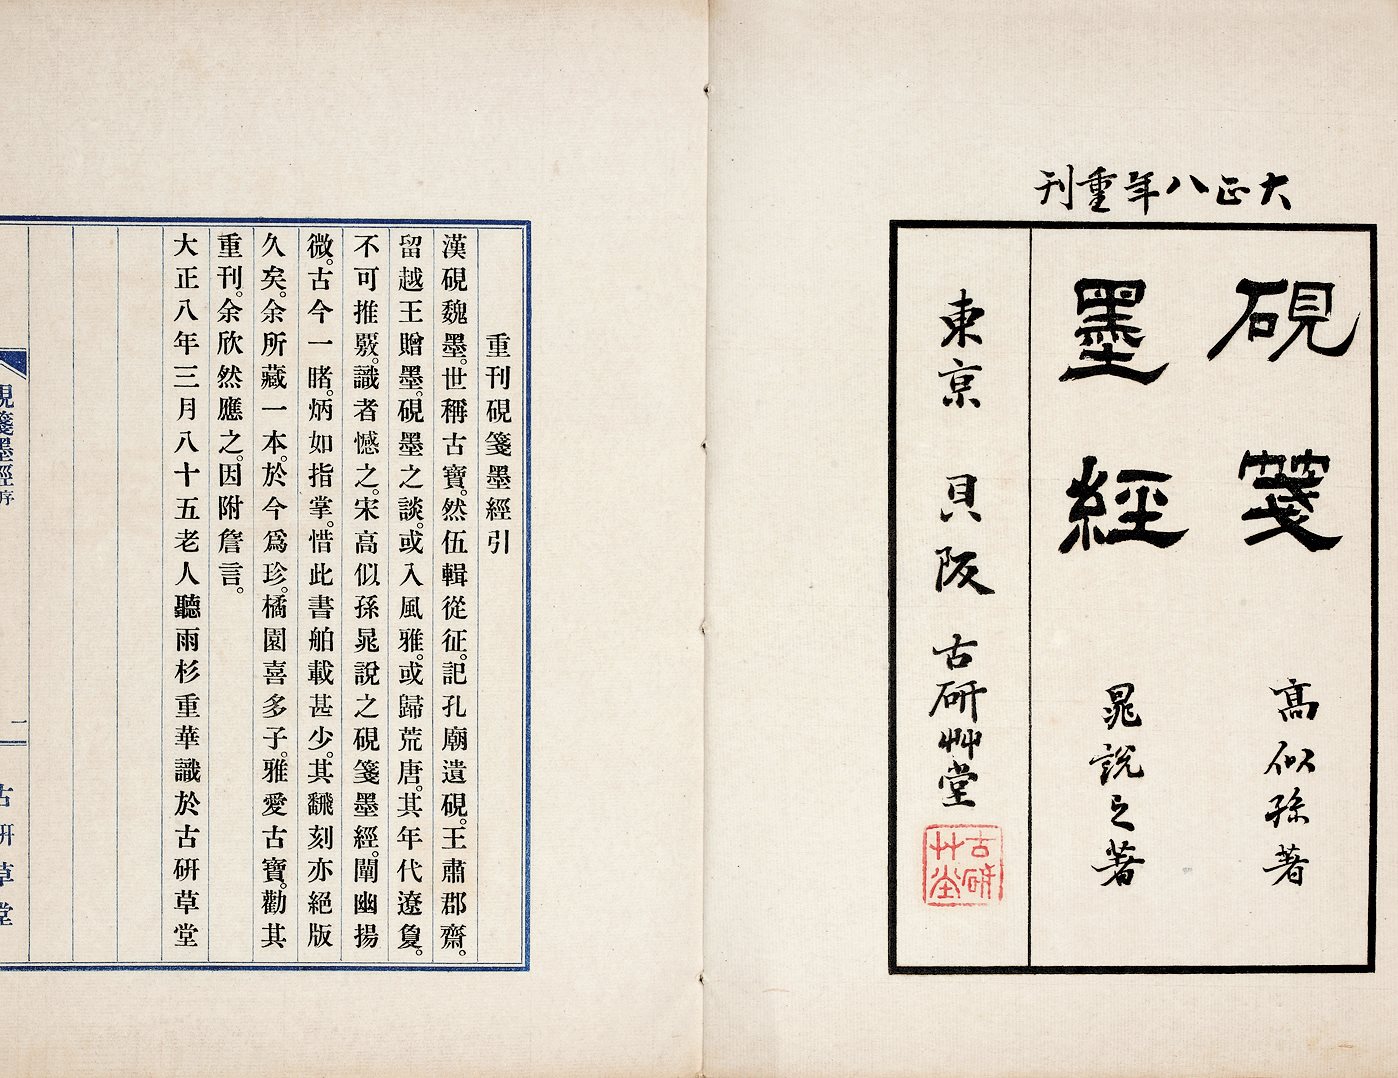 大正八年重刊
硯箋 高似孫著
墨經 晁說之著
東京 貝阪 古研艸堂
古研艸堂
重刊硯箋墨經引
漢硯魏墨。世稱古寶。然伍輯從征。記孔廟遺硯。王肅郡齋。
留越王贈墨。硯墨之談。或入風雅。或歸荒唐。其年代遼夐。
不可推覈。識者憾之。宋高似孫晁說之硯箋墨經。闡幽揚
微。古今一睹。炳如指掌。惜此書舶載甚少。其飜刻亦絕版
久矣。余所藏一本。於今爲珍。橘園喜多子。雅愛古寶。勸其
重刊。余欣然應之。因附詹言。
大正八年三月八十五老人聽雨杉重華識於古硏草堂
硯箋墨經 序
二
古硏草堂